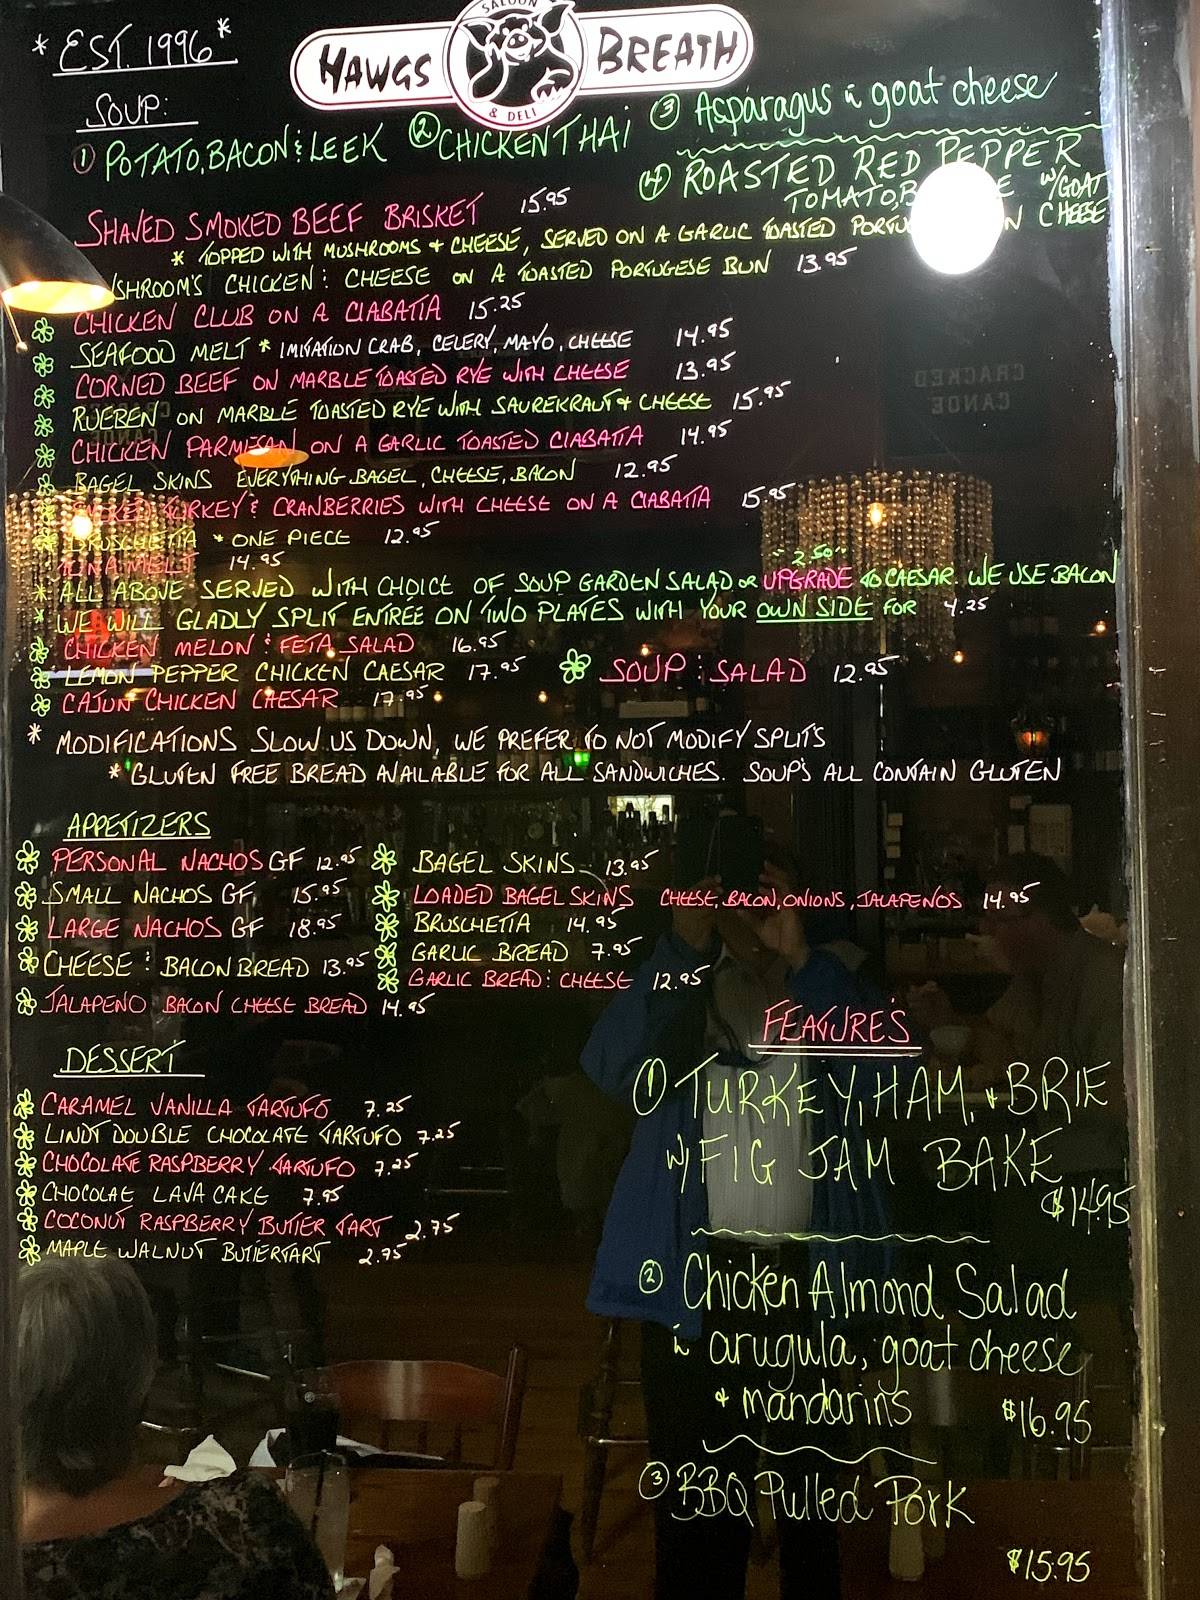 * EST. 1996 *
SALOON
HAWGS BREATH
& DELI
SOUP:
① POTATO, BACON & LEEK ② CHICKEN THAI ③ Asparagus & goat cheese
④ ROASTED RED PEPPER
TOMATO, W/GOAT
CHEESE
SHAVED SMOKED BEEF BRISKET 15.95
* TOPPED WITH MUSHROOMS & CHEESE, SERVED ON A GARLIC TOASTED
SHROOM'S CHICKEN & CHEESE ON A TOASTED PORTUGESE BUN 13.95
CHICKEN CLUB ON A CIABATTA 15.25
SEAFOOD MELT * IMITATION CRAB, CELERY, MAYO, CHEESE 14.95
CORNED BEEF ON MARBLE TOASTED RYE WITH CHEESE 13.95
RUEBEN ON MARBLE TOASTED RYE WITH SAUREKRAUT & CHEESE 15.95
CHICKEN PARMESAN ON A GARLIC TOASTED CIABATTA 14.95
BAGEL SKINS EVERYTHING BAGEL, CHEESE, BACON 12.95
SMOKED TURKEY & CRANBERRIES WITH CHEESE ON A CIABATTA 15.95
BRUSCHETTA * ONE PIECE 12.95
TUNA MELT 14.95
"2.50"
* ALL ABOVE SERVED WITH CHOICE OF SOUP GARDEN SALAD OR UPGRADE TO CAESAR. WE USE BACON
* WE WILL GLADLY SPLIT ENTREE ON TWO PLATES WITH YOUR OWN SIDE FOR 4.25
CHICKEN MELON & FETA SALAD 16.95
LEMON PEPPER CHICKEN CAESAR 17.95 SOUP & SALAD 12.95
CAJUN CHICKEN CAESAR 17.95
* MODIFICATIONS SLOW US DOWN, WE PREFER TO NOT MODIFY SPLIT'S
* GLUTEN FREE BREAD AVAILABLE FOR ALL SANDWICHES. SOUP'S ALL CONTAIN GLUTEN
APPETIZERS
PERSONAL NACHOS GF 12.95 BAGEL SKINS 13.95
SMALL NACHOS GF 15.95 LOADED BAGEL SKINS CHEESE, BACON, ONIONS, JALAPENOS 14.95
LARGE NACHOS GF 18.95 BRUSCHETTA 14.95
CHEESE & BACON BREAD 13.95 GARLIC BREAD 7.95
JALAPENO BACON CHEESE BREAD 14.95 GARLIC BREAD & CHEESE 12.95
DESSERT
CARAMEL VANILLA TARTUFO 7.25
LINDT DOUBLE CHOCOLATE TARTUFO 7.25
CHOCOLATE RASPBERRY TARTUFO 7.25
CHOCOLAE LAVA CAKE 7.95
COCONUT RASPBERRY BUTTER TART 2.75
MAPLE WALNUT BUTTERTART 2.75
FEATURE'S
① TURKEY, HAM, & BRIE
W/ FIG JAM BAKE
$14.95
② Chicken Almond Salad
arugula, goat cheese
& mandarins $16.95
③ BBQ Pulled Pork
$15.95